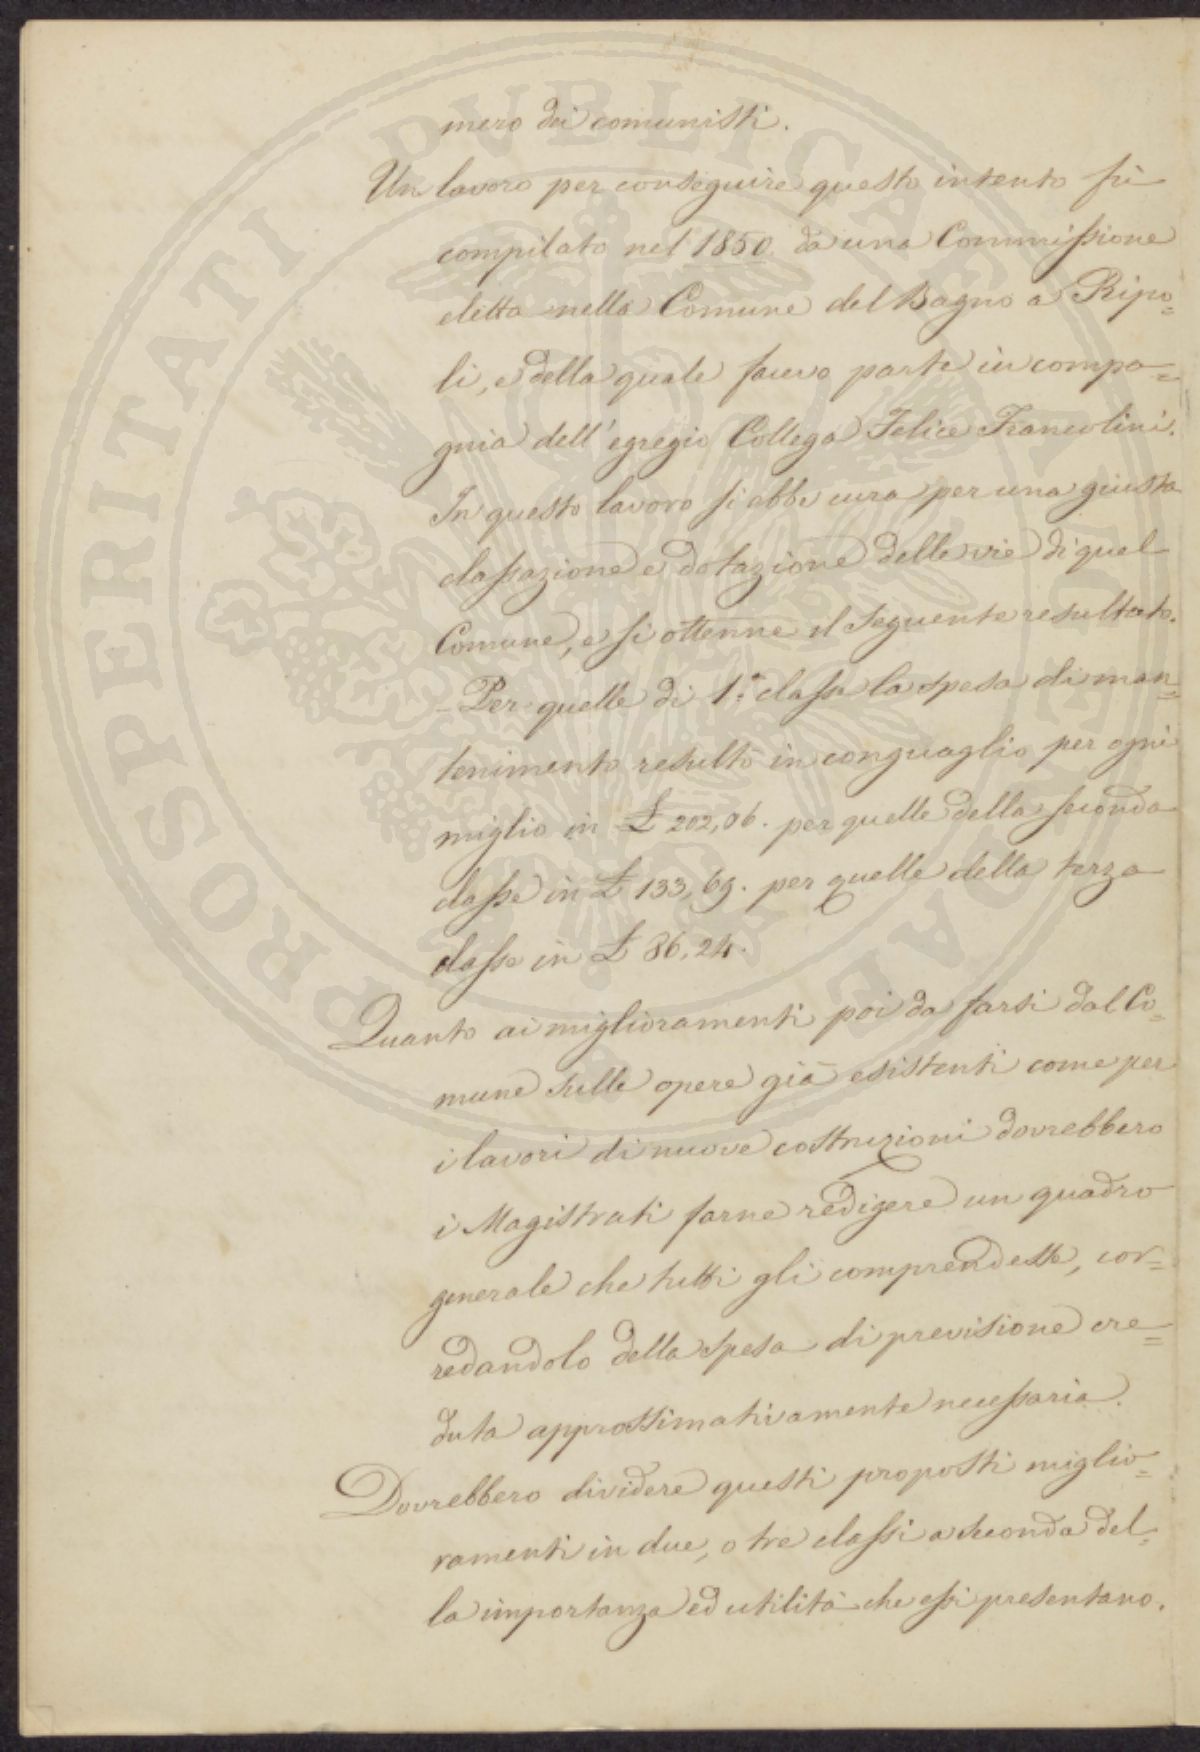 mero dei comunisti.
Un lavoro per conseguire questo intento fù
compilato nel 1850. da una Commissione
eletta nella Comune del Bagno a Ripo=
li, e della quale facevo parte in compa=
gnia dell'egregio Collega Felice Francolini.
In questo lavoro si ebbe cura per una giusta
classazione e dotazione delle vie di quel
Comune, e si ottenne il seguente resultato.
- Per quelle di 1.a classe la spesa di man=
tenimento resultò in conguaglio per ogni
miglio in £ 202,06. per quelle della seconda
classe in £ 133,69. per quelle della terza
classe in £ 86,24.
Quanto ai miglioramenti poi da farsi dal Co=
mune sulle opere già esistenti come per
i lavori di nuove costruzioni dovrebbero
i Magistrati farne redigere un quadro
generale che tutti gli comprendesse, cor=
redandolo della spesa di previsione cre=
duta approssimativamente necessaria.
Dovrebbero dividere questi proposti miglio=
ramenti in due, o tre classi a seconda del=
la importanza ed utilità che essi presentano.
PROSPERITATI PVBLICAE AVGENDAE